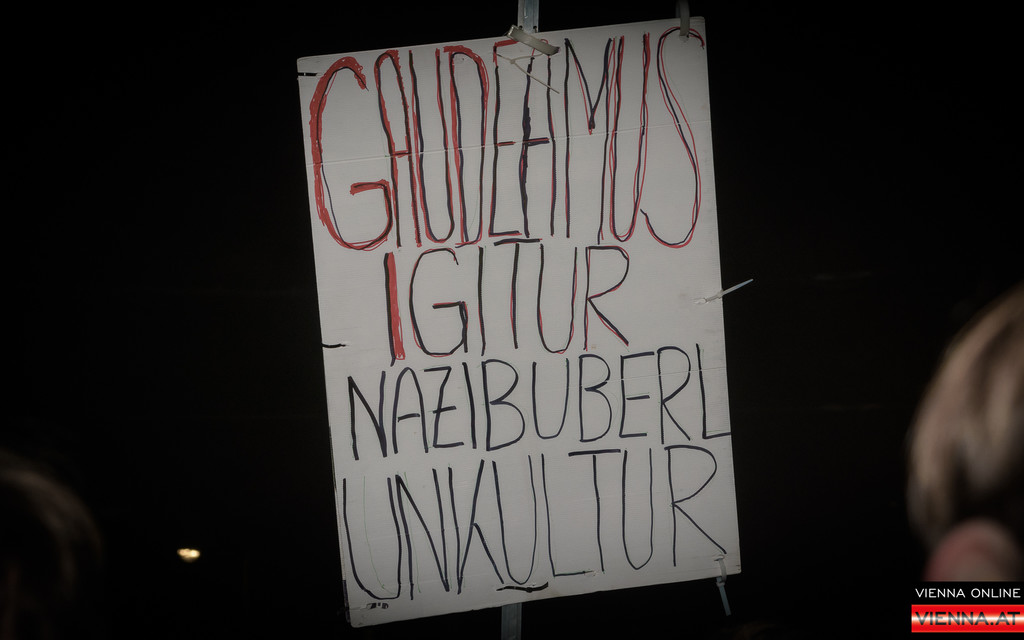 GAUDEAMUS
IGITUR
NAZIBUBERL
UNKULTUR
VIENNA ONLINE
VIENNA.AT